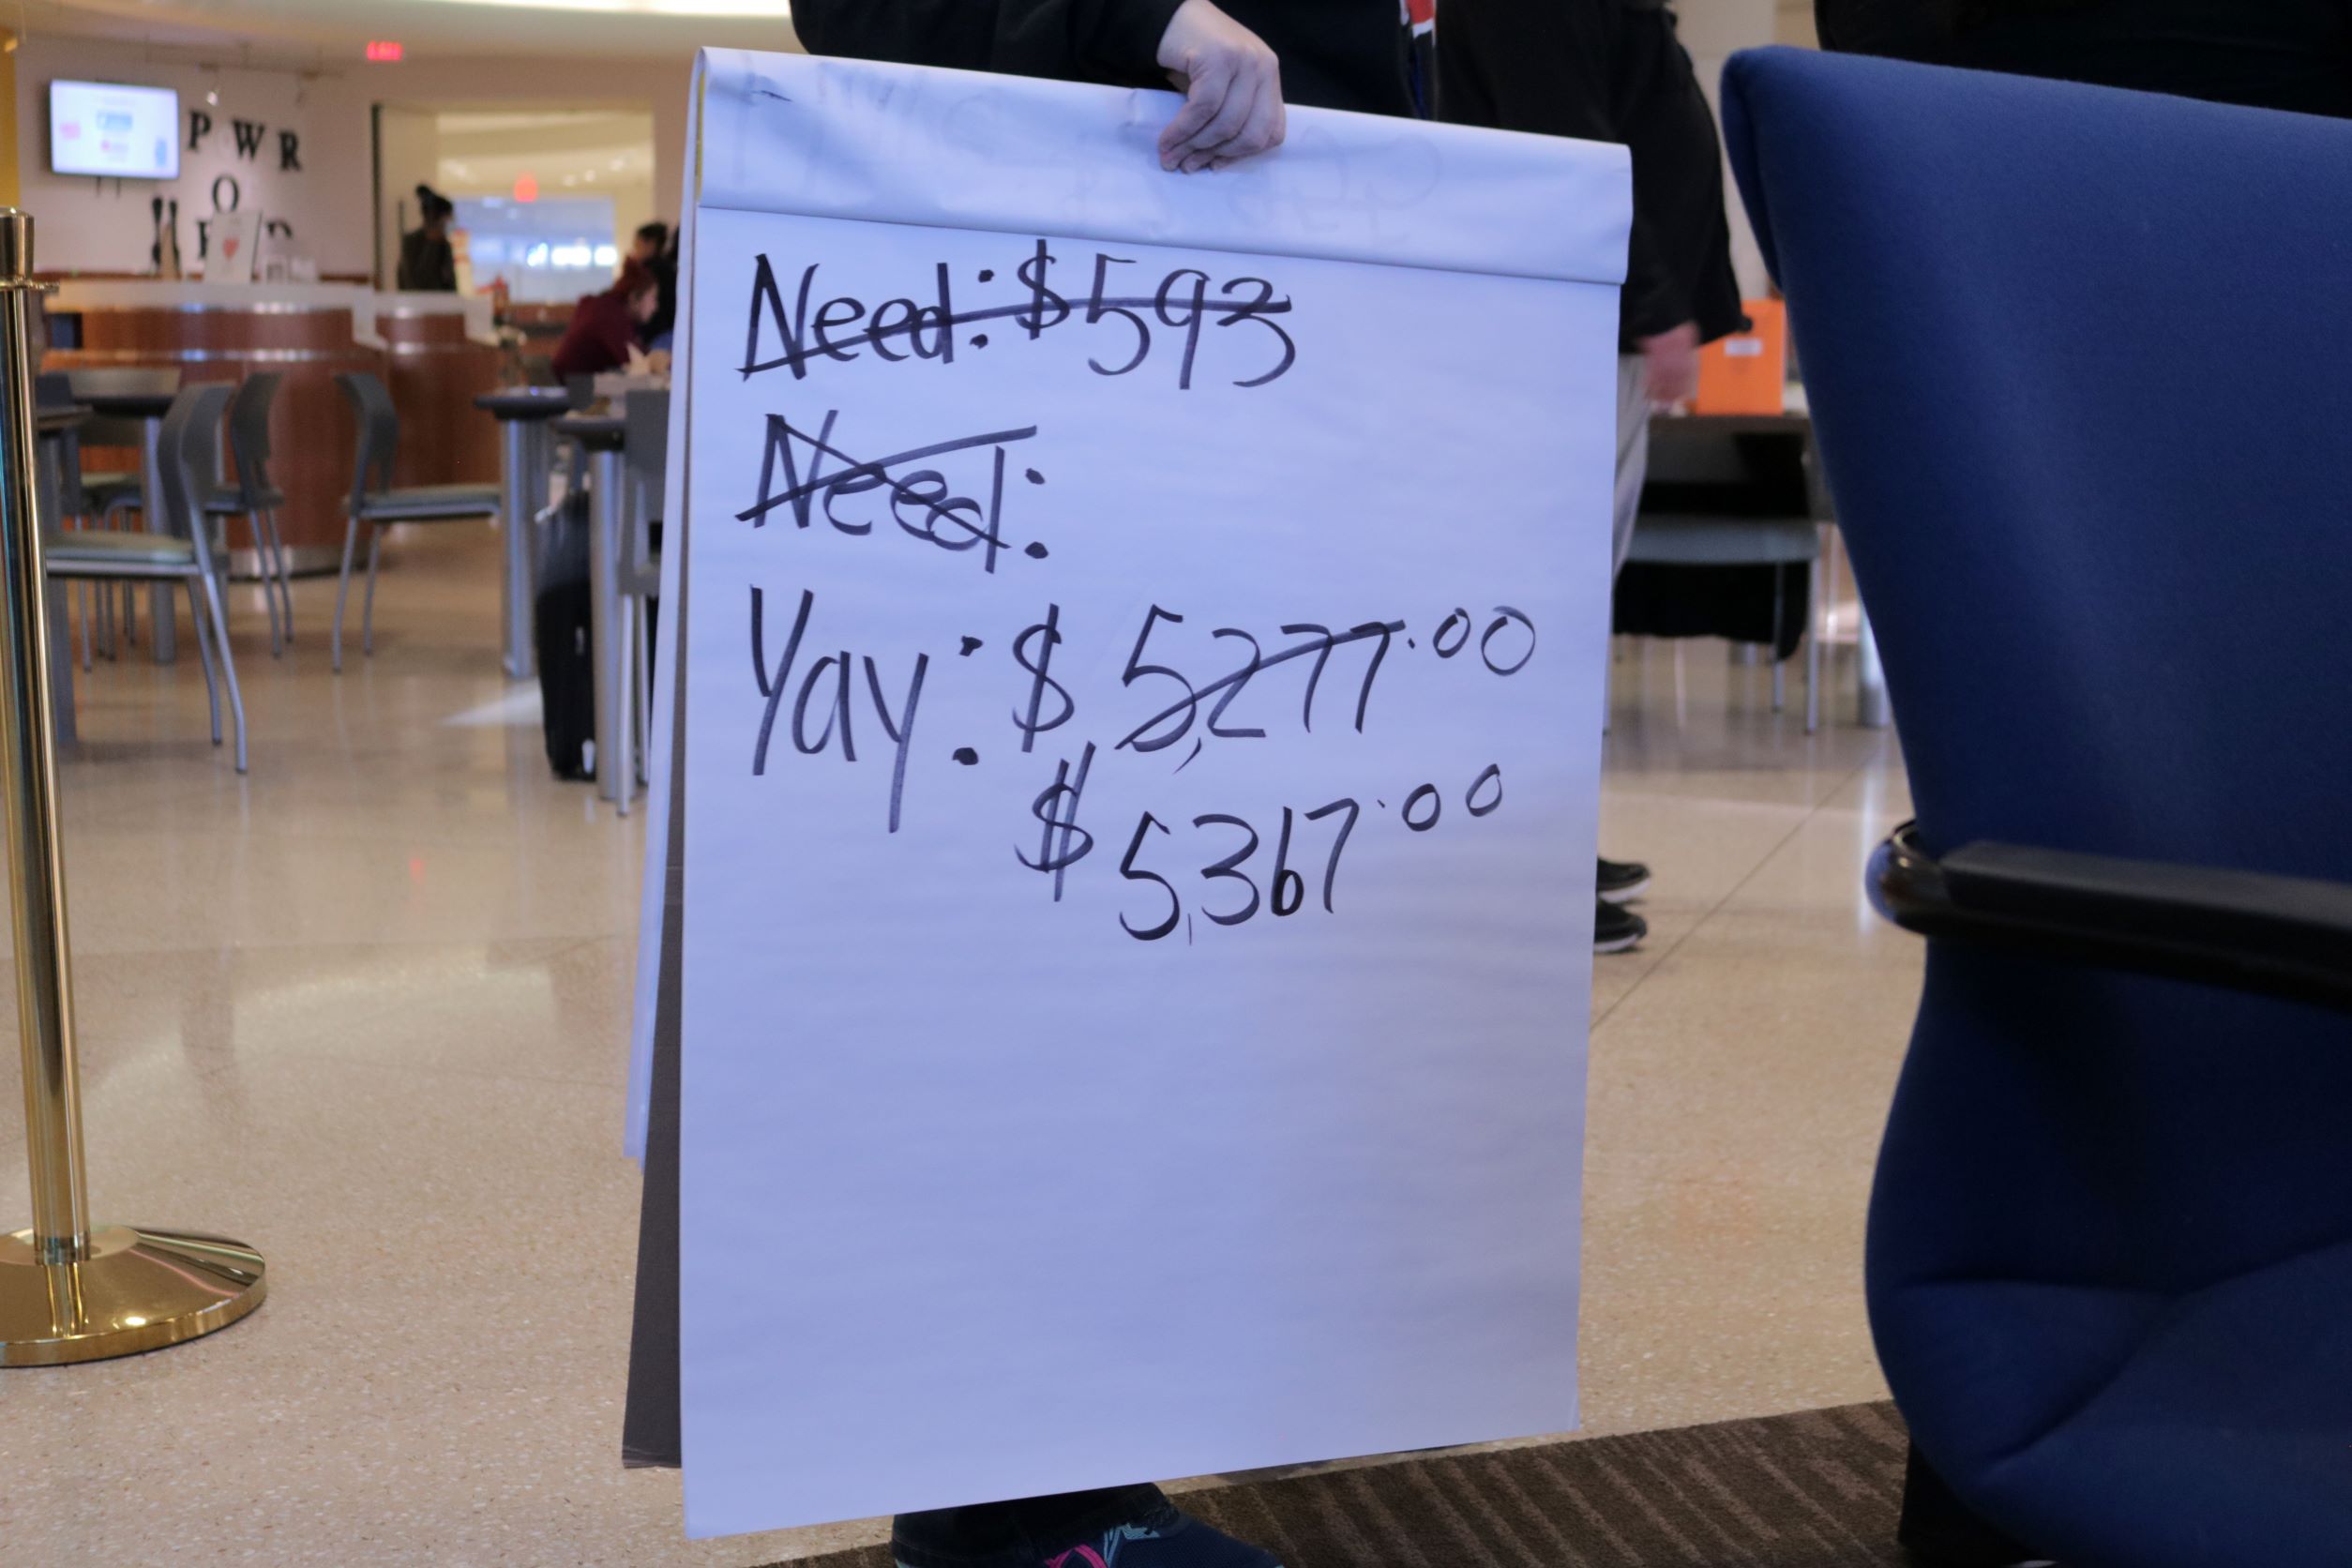 P W R
O
Need: $593
Need:
Yay: $5,277.00
$5,367.00